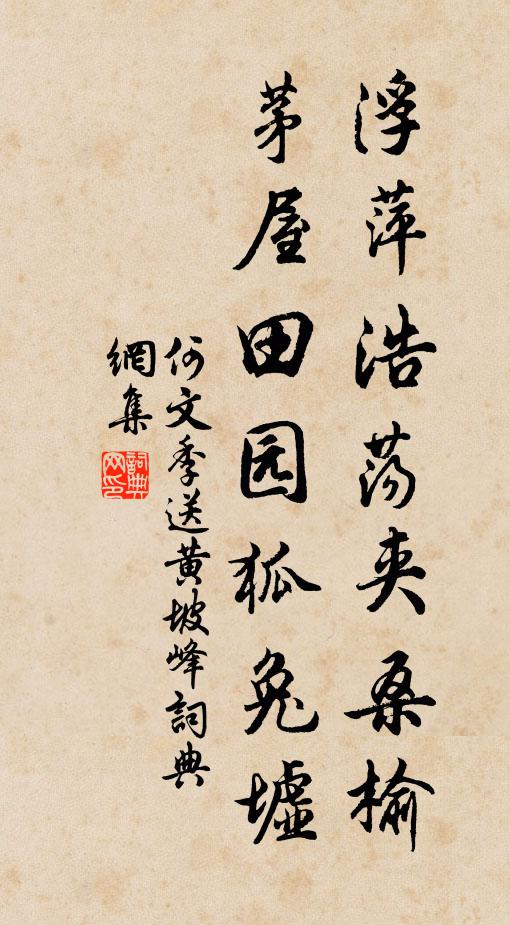 浮萍浩荡夹桑榆
茅屋田园狐兔墟
何文季送黄坡峰詞典
網集
詞典
网印